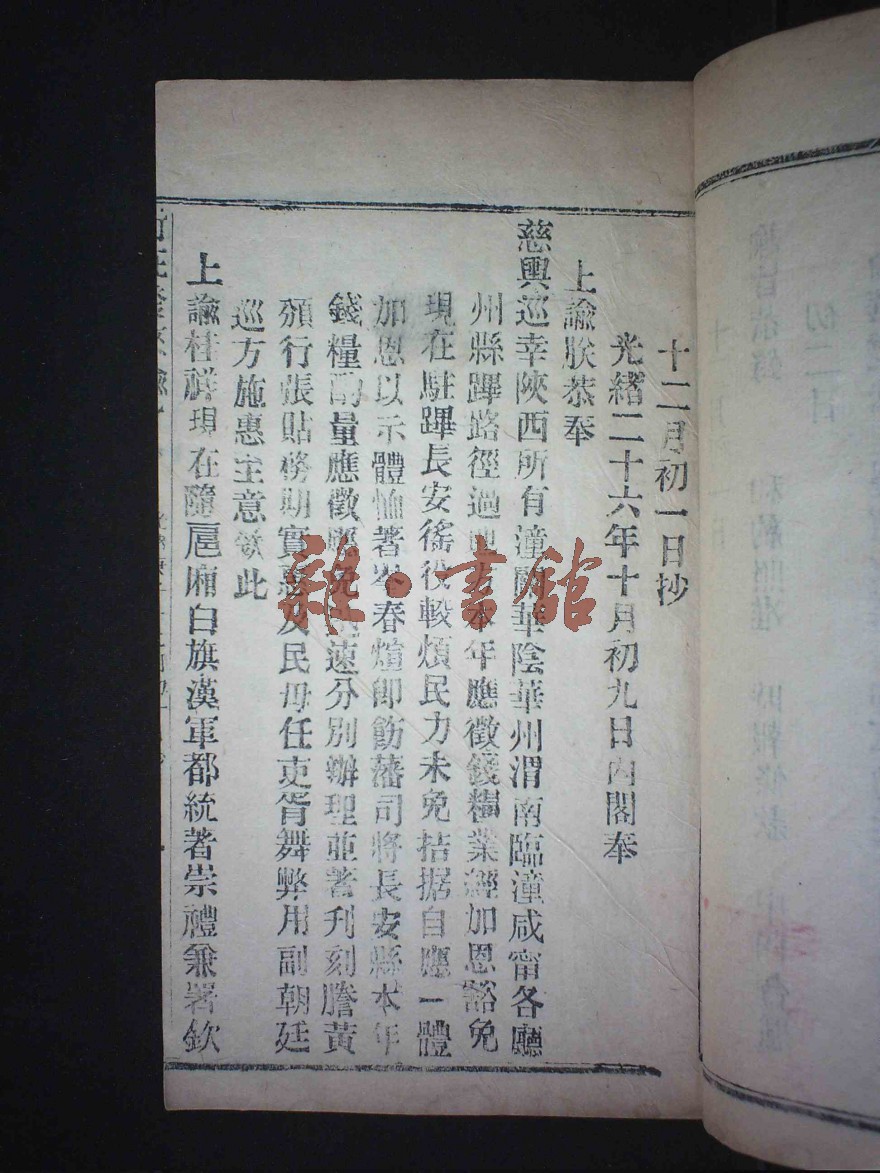 十二月初一日抄
光緒二十六年十月初九日內閣奉
上諭朕恭奉
慈輿巡幸陝西所有潼關華陰華州渭南臨潼咸甯各廳
州縣蹕路徑過地方本年應徵錢糧業經加恩豁免
現在駐蹕長安徭役較煩民力未免拮据自應一體
加恩以示體恤著岑春煊即飭藩司將長安縣本年
錢糧酌量應徵應免迅速分別辦理並著刋刻謄黃
頒行張貼務期實惠及民毋任吏胥舞弊用副朝廷
巡方施惠至意欽此
上諭桂祥現在隨扈廂白旗漢軍都統著崇禮兼署欽
雜·書館